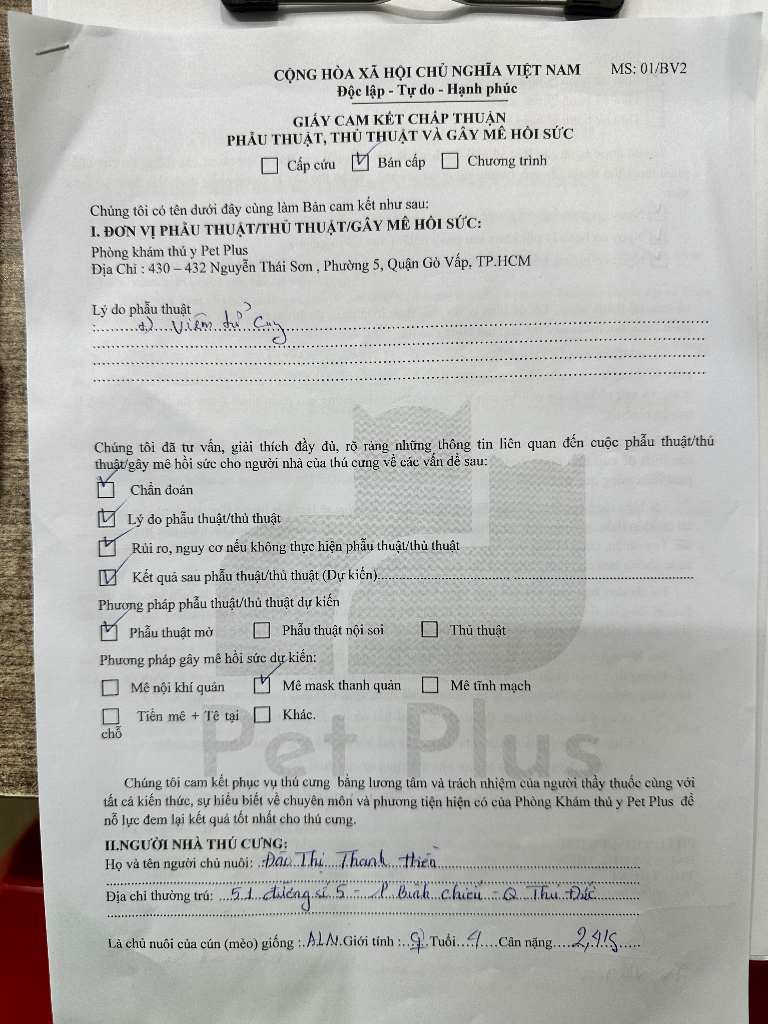 CỘNG HÒA XÃ HỘI CHỦ NGHĨA VIỆT NAM MS: 01/BV2
Độc lập - Tự do - Hạnh phúc
GIẤY CAM KẾT CHẤP THUẬN
PHẪU THUẬT, THỦ THUẬT VÀ GÂY MÊ HỒI SỨC
Cấp cứu Bán cấp Chương trình
Chúng tôi có tên dưới đây cùng làm Bản cam kết như sau:
I. ĐƠN VỊ PHẪU THUẬT/THỦ THUẬT/GÂY MÊ HỒI SỨC:
Phòng khám thú y Pet Plus
Địa Chỉ : 430 – 432 Nguyễn Thái Sơn , Phường 5, Quận Gò Vấp, TP.HCM
Lý do phẫu thuật
: viêm tử cung
Chúng tôi đã tư vấn, giải thích đầy đủ, rõ ràng những thông tin liên quan đến cuộc phẫu thuật/thủ
thuật/gây mê hồi sức cho người nhà của thú cưng về các vấn đề sau:
Chẩn đoán
Lý do phẫu thuật/thủ thuật
Rủi ro, nguy cơ nếu không thực hiện phẫu thuật/thủ thuật
Kết quả sau phẫu thuật/thủ thuật (Dự kiến)
Phương pháp phẫu thuật/thủ thuật dự kiến
Phẫu thuật mở Phẫu thuật nội soi Thủ thuật
Phương pháp gây mê hồi sức dự kiến:
Mê nội khí quản Mê mask thanh quản Mê tĩnh mạch
Tiền mê + Tê tại Khác.
chỗ
Pet Plus
Chúng tôi cam kết phục vụ thú cưng bằng lương tâm và trách nhiệm của người thầy thuốc cùng với
tất cả kiến thức, sự hiểu biết về chuyên môn và phương tiện hiện có của Phòng Khám thú y Pet Plus để
nỗ lực đem lại kết quả tốt nhất cho thú cưng.
II.NGƯỜI NHÀ THÚ CƯNG:
Họ và tên người chủ nuôi: Đào Thị Thanh Hiền
Địa chỉ thường trú: 51 đường số 5 - P Bình Chiểu - Q Thủ Đức
Là chủ nuôi của cún (mèo) giống : ALN Giới tính : ♀ Tuổi 4 Cân nặng